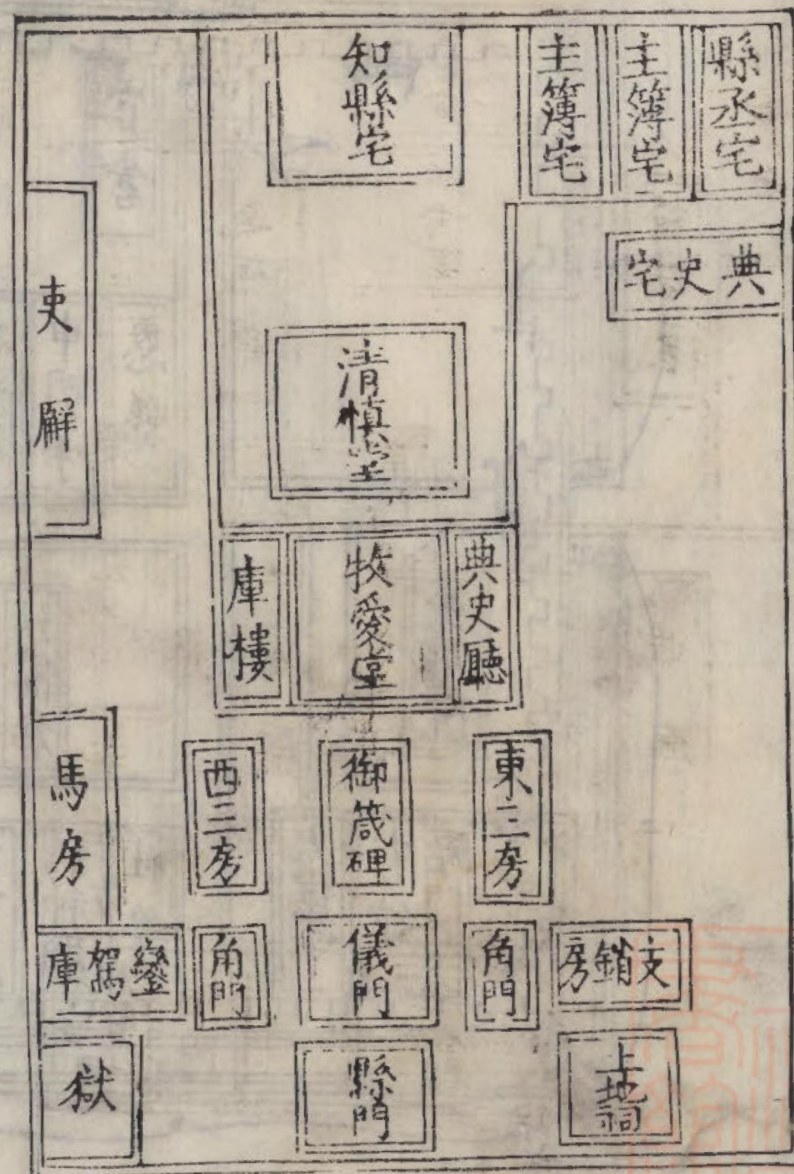 縣丞宅
主簿宅
主簿宅
知縣宅
典史宅
吏廨
清慎堂
典史廳
牧愛堂
庫樓
東三房
御箴碑
西三房
馬房
支銷房
角門
儀門
角門
鑾駕庫
土地祠
縣門
獄